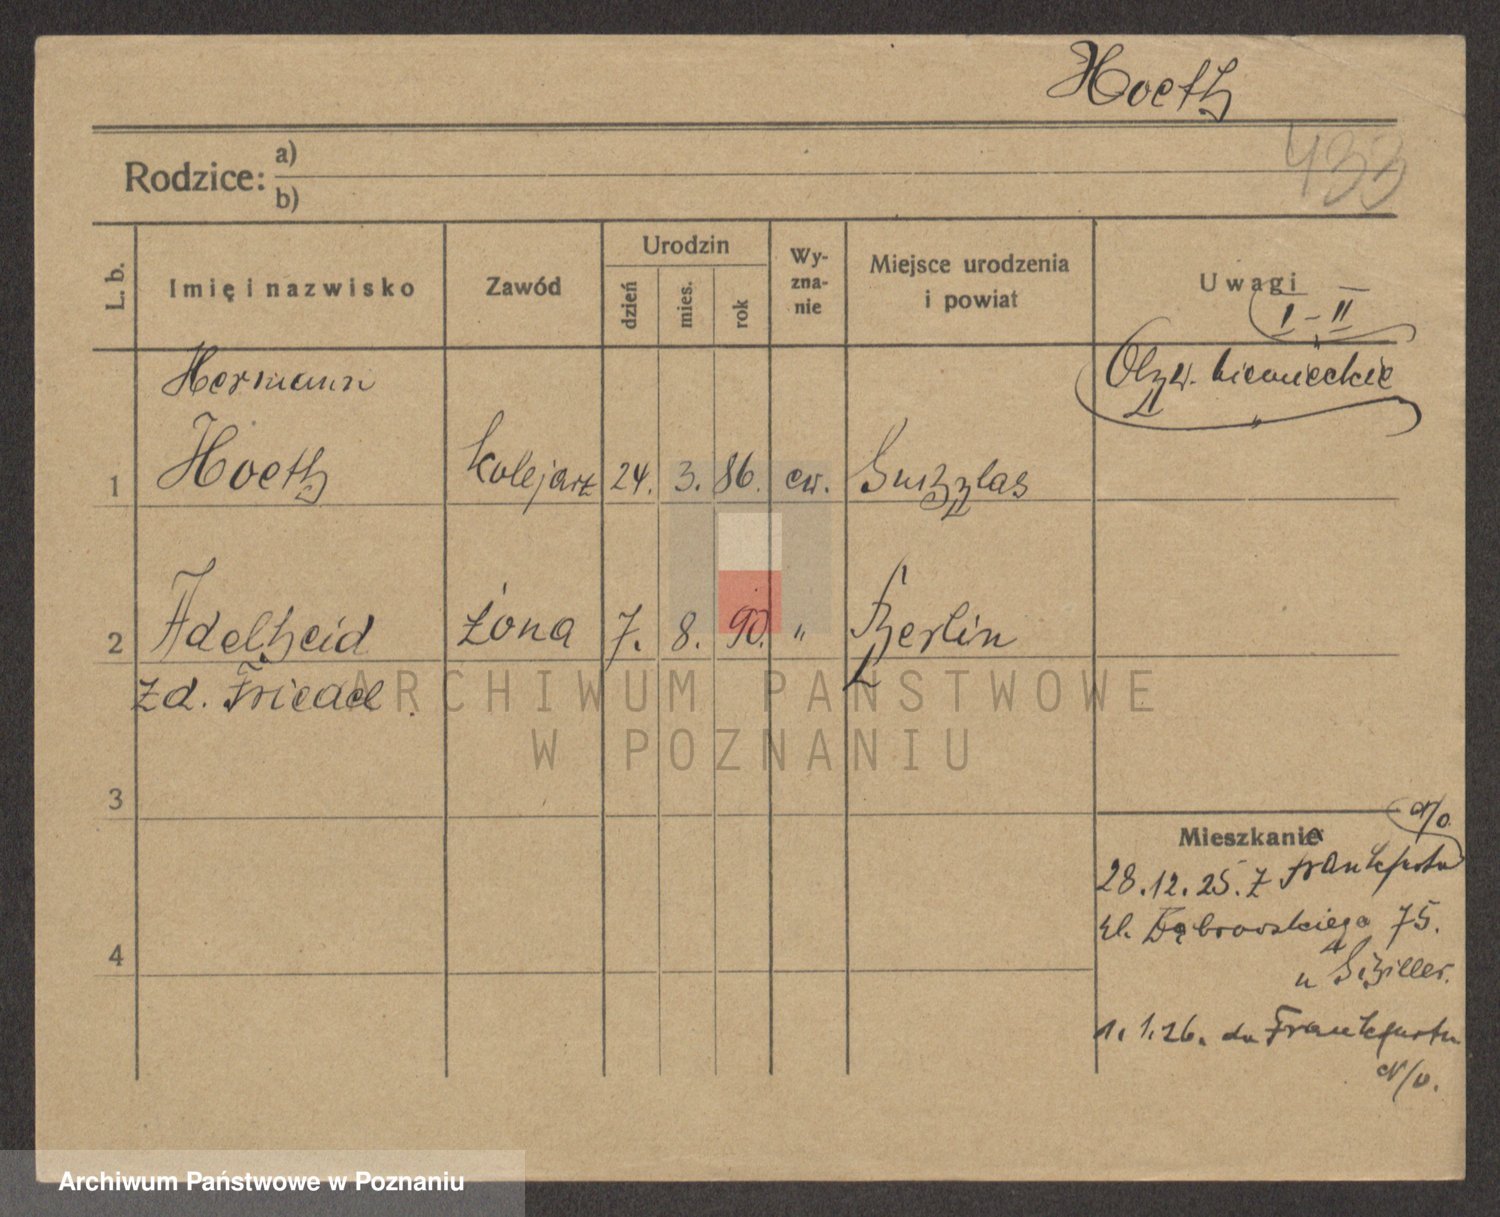 Hoeth
433
Rodzice: a)
b)
L. b. Imię i nazwisko Zawód Urodzin dzień mies. rok Wyznanie Miejsce urodzenia i powiat Uwagi
I - II
Obyw. niemieckie
Hermann
1 Hoeth kolejarz 24. 3. 86. ew.
2 Adelheid żona 7. 8. 90. " Berlin
zd.
ARCHIWUM PAŃSTWOWE
W POZNANIU
3
4
Mieszkanie
n/o.
28.12.25. z Frankfurtu
ul. Dąbrowskiego 75.
u
1.1.26. do Frankfurtu
n/o.
Archiwum Państwowe w Poznaniu